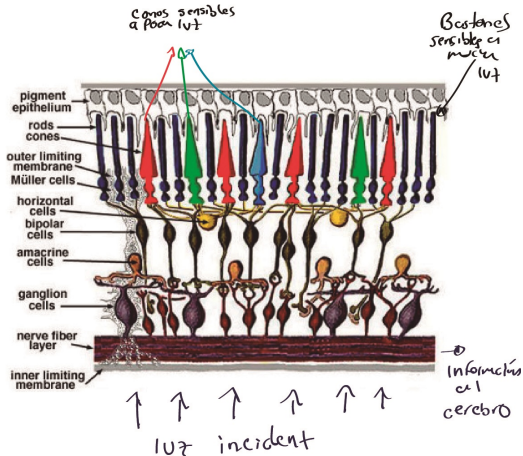 conos sensibles
a poca luz
Bastones
sensibles a
mucha
luz
pigment
epithelium
rods
cones
outer limiting
membrane
Müller cells
horizontal
cells
bipolar
cells
amacrine
cells
ganglion
cells
nerve fiber
layer
inner limiting
membrane
Información
al
cerebro
luz incident